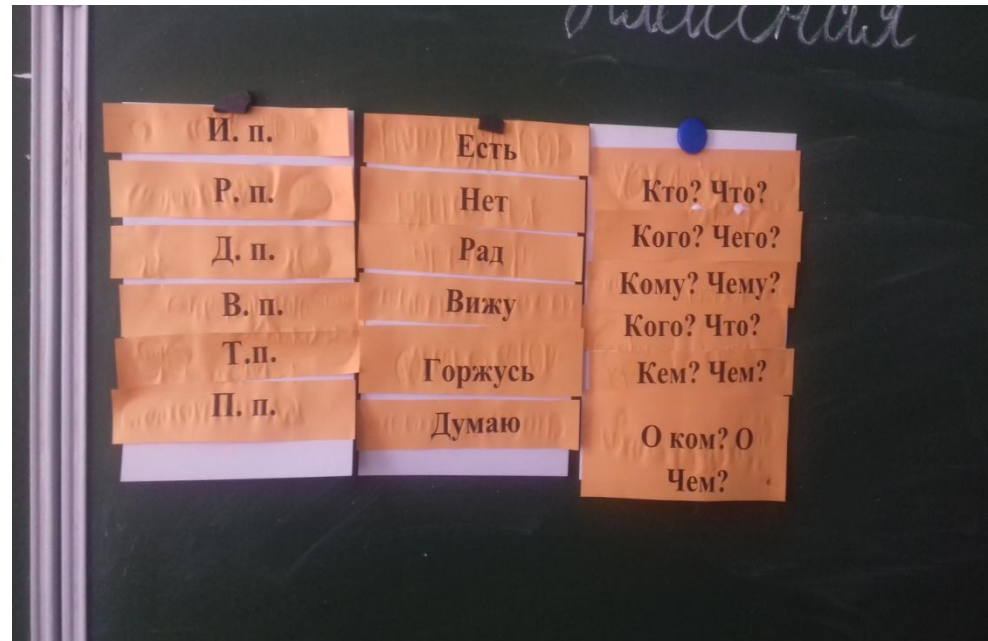 Классная
И. п.
Р. п.
Д. п.
В. п.
Т.п.
П. п.
Есть
Нет
Рад
Вижу
Горжусь
Думаю
Кто? Что?
Кого? Чего?
Кому? Чему?
Кого? Что?
Кем? Чем?
О ком? О
Чем?